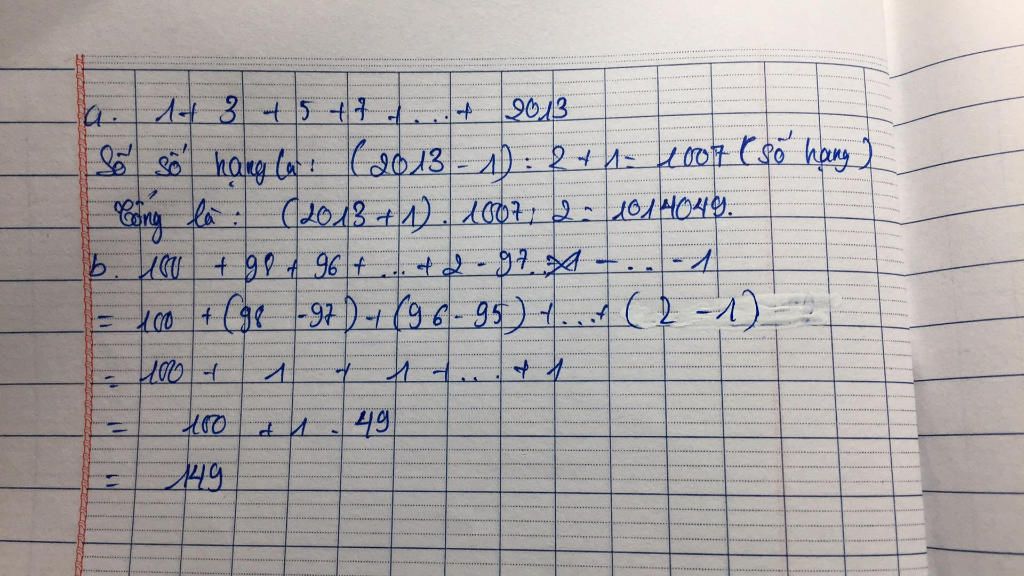 a. 1 + 3 + 5 + 7 + ... + 2013
Số số hạng là: (2013 - 1) : 2 + 1 = 1007 (số hạng)
Tổng là: (2013 + 1) . 1007 : 2 = 1014049.
b. 100 + 98 + 96 + ... + 2 - 97 - ... - 1
= 100 + (98 - 97) + (96 - 95) + ... + (2 - 1)
= 100 + 1 + 1 + ... + 1
= 100 + 1 . 49
= 149